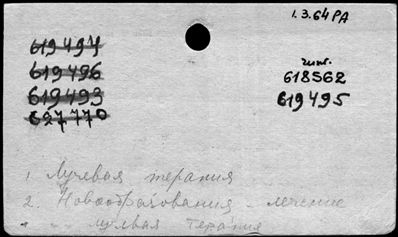 1.3.64 РА
619494
619496
619493
627770
618562
619495
1 Лучевая терапия
2. Новообразования - лечение
лучевая терапия